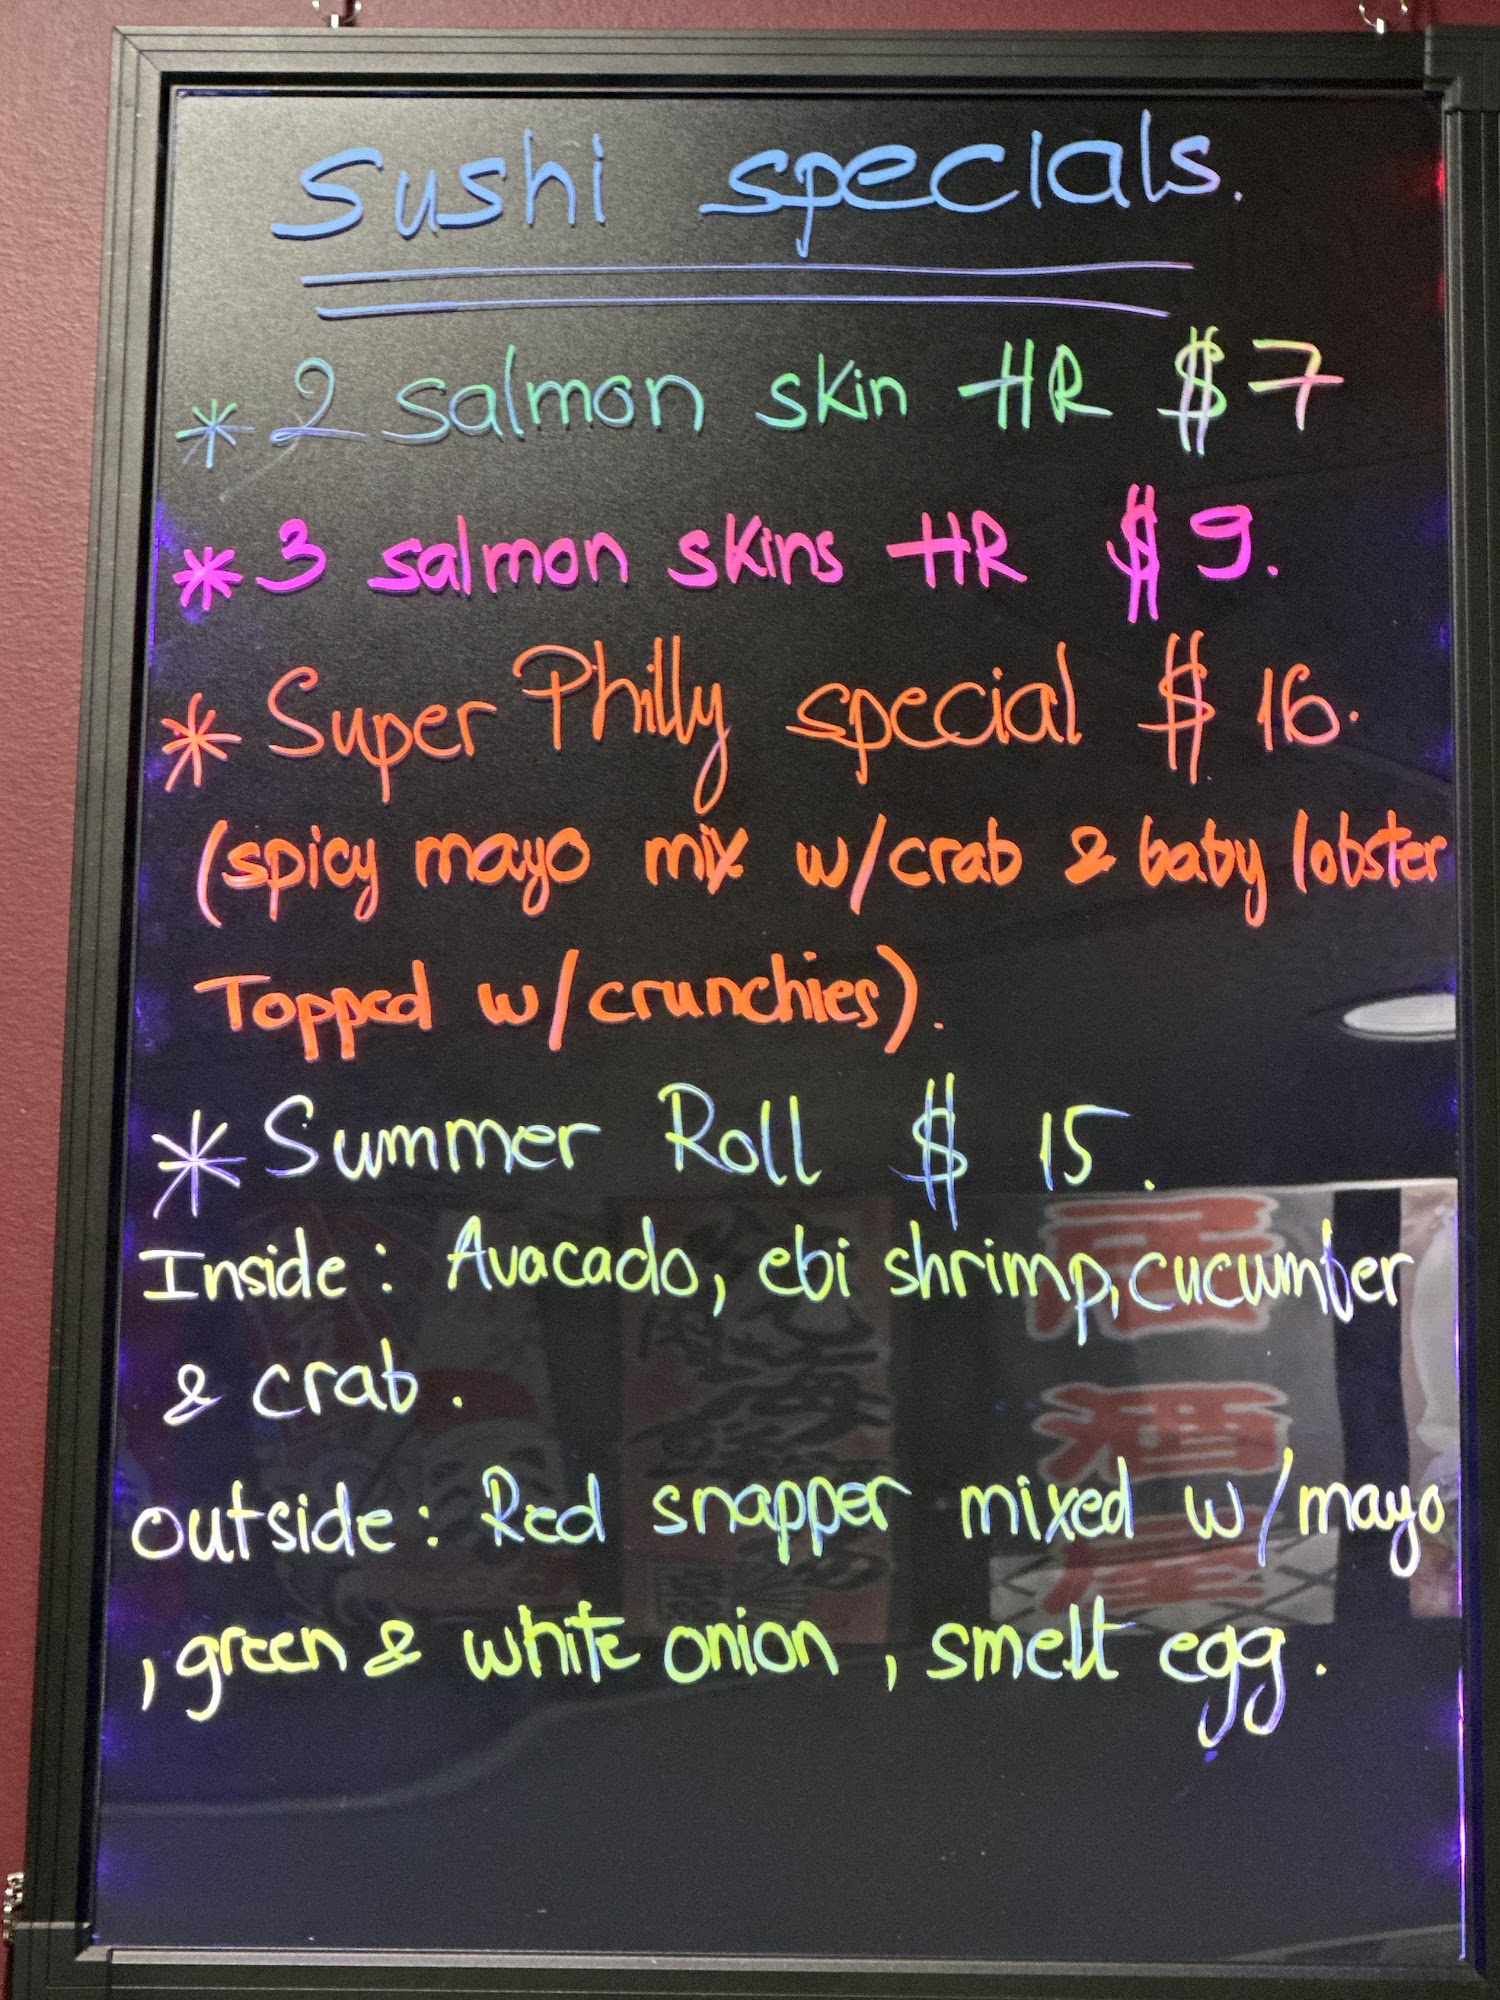 Sushi specials.
* 2 salmon skin HR $7
* 3 salmon skins HR $9.
* Super Philly special $16.
(spicy mayo mix w/crab & baby lobster
Topped w/crunchies).
* Summer Roll $15.
Inside: Avacado, ebi shrimp, cucumber
& crab.
Outside: Red snapper mixed w/mayo
, green & white onion, smelt egg.